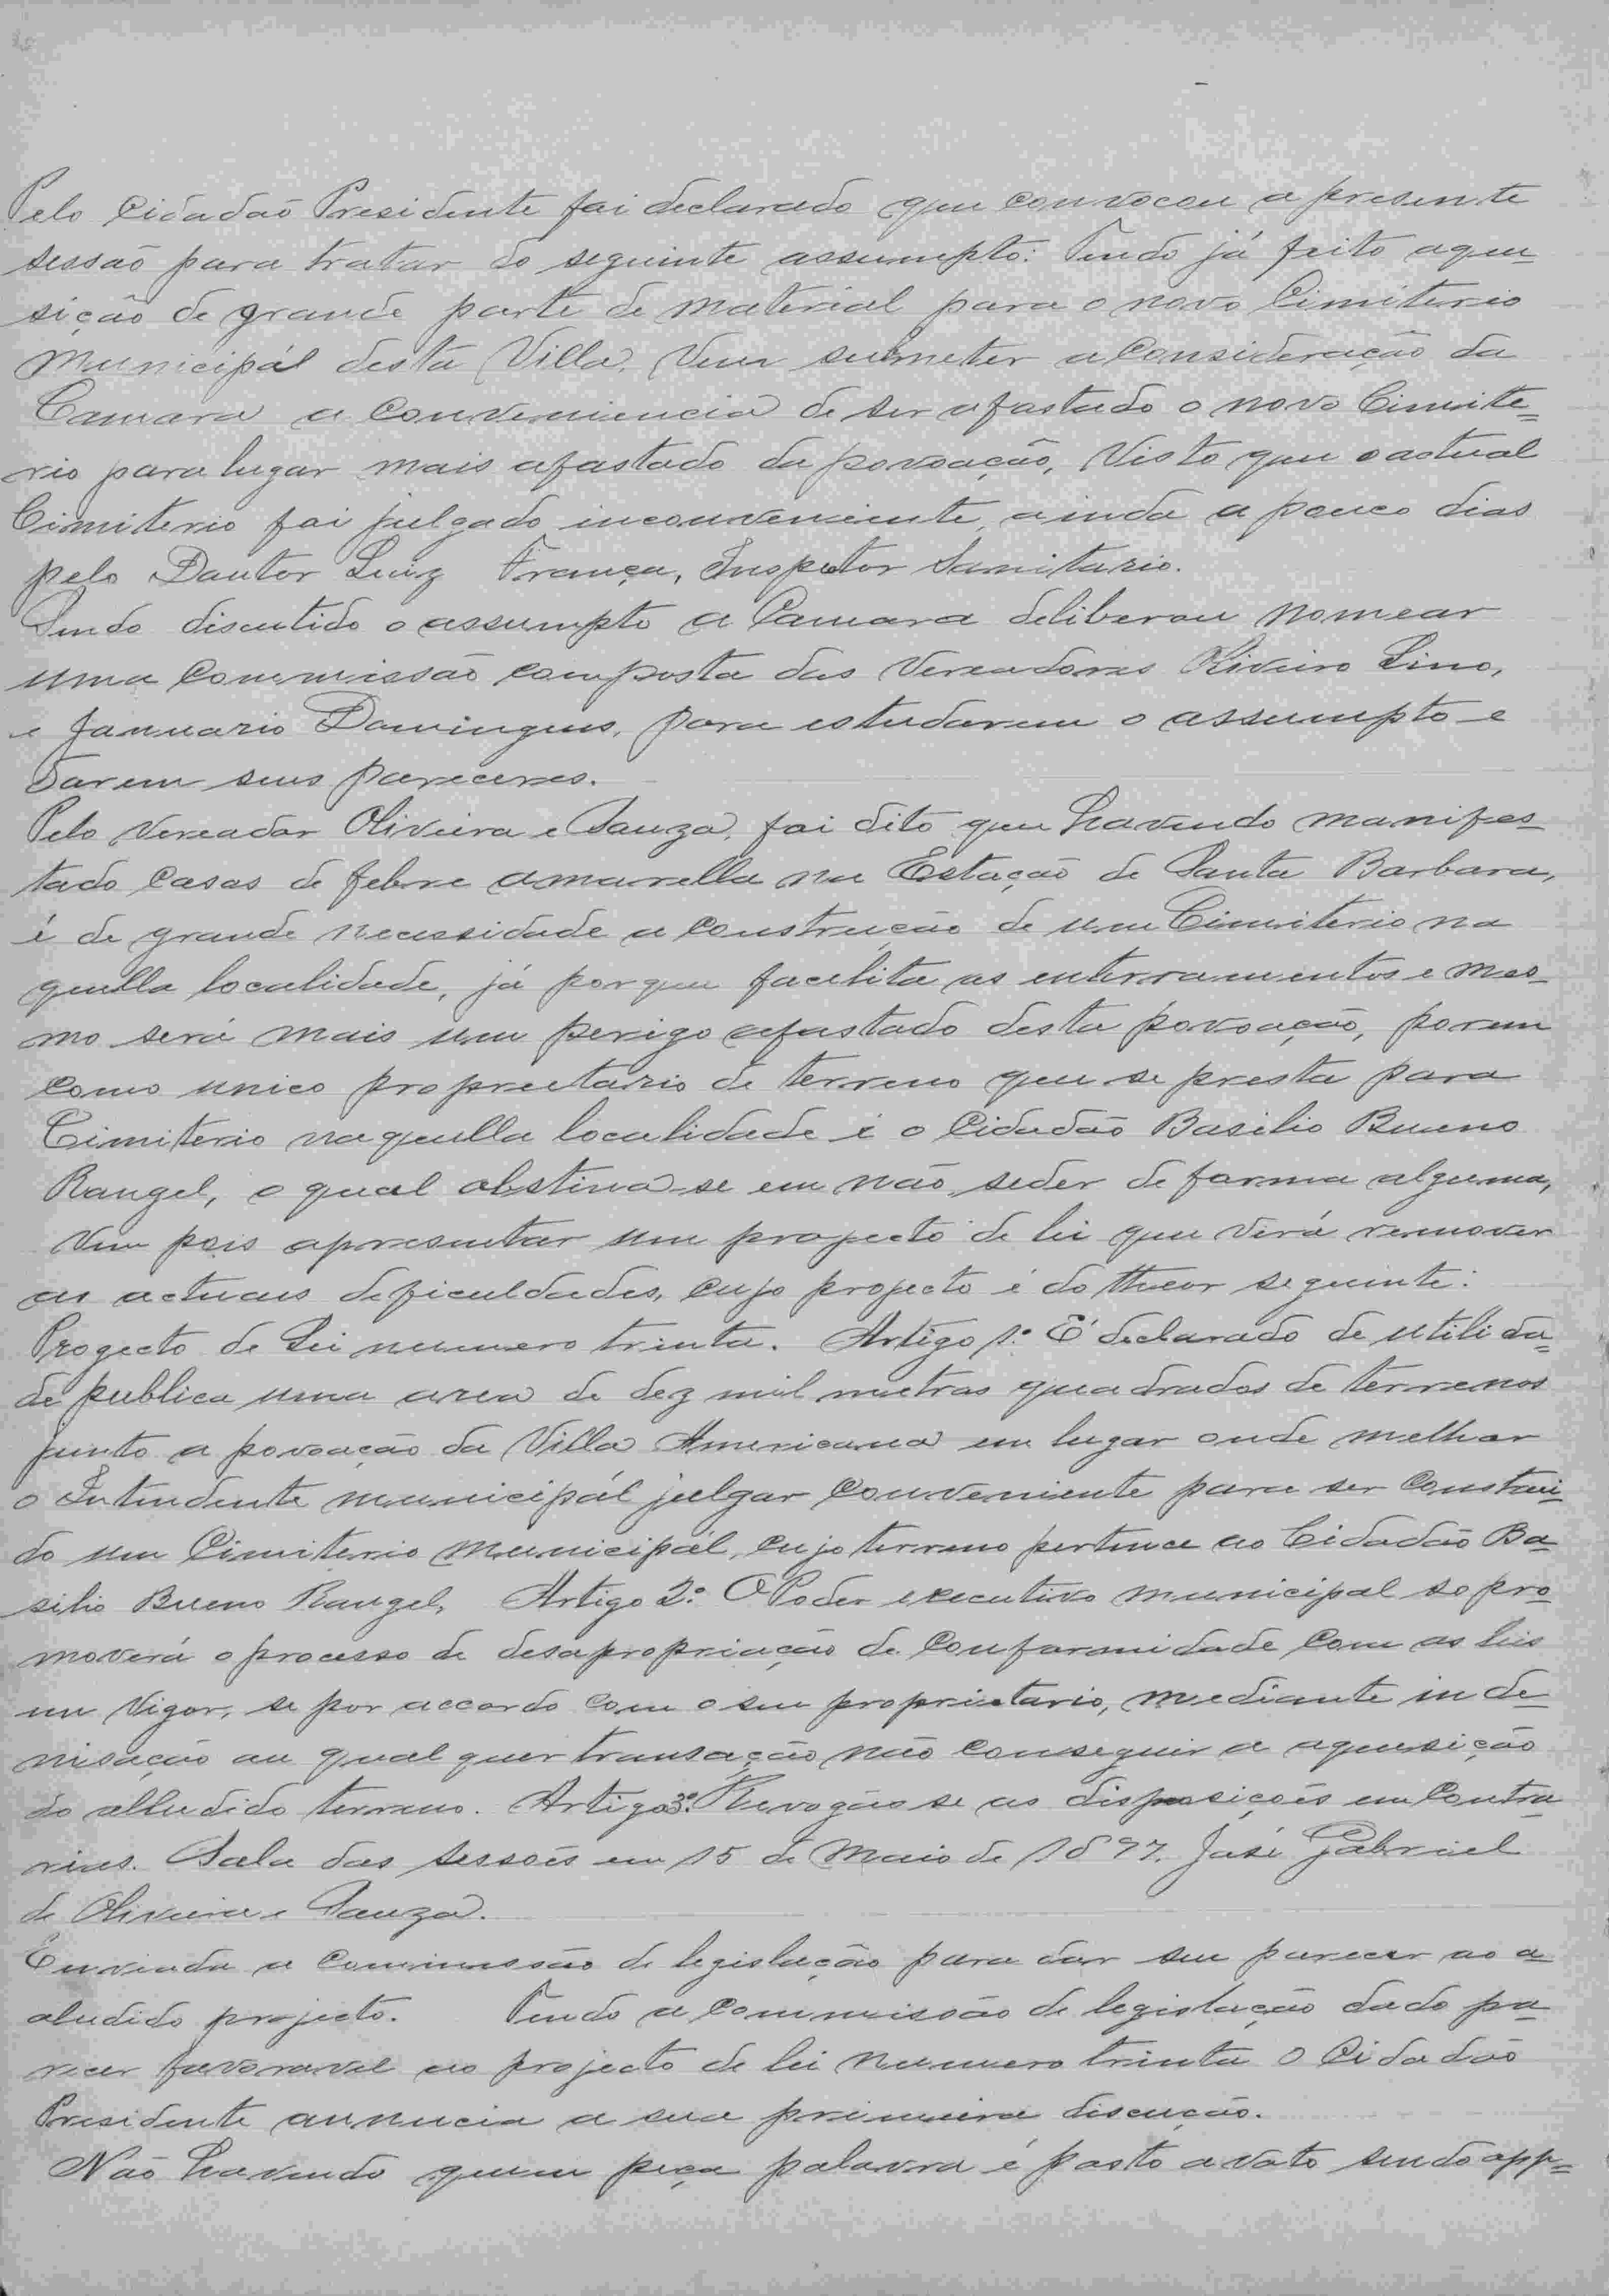 Pelo Cidadaõ Presidente foi declarado que convocou a presente
sessaõ para tratar do seguinte assumpto: Tendo já feito aque
sição de grande parte de material para o novo Cimiterio
Municipál desta Villa, Vem submeter a Consideração da
Camara a conveniencia de ser afastado o novo Cimite=
rio para lugar mais afastado da povoação, Visto que o actual
Cimiterio foi julgado inconveniente, ainda a pouco dias
pelo Doutor Luiz França, Inspetor Sanitario.
Sendo discutido o assumpto a Camara deliberou nomear
uma Commissaõ composta dos Vereadores Oliveiro Lino,
e Januario Domingues, para estudarem o assumpto e
darem seus pareceres.
Pelo Vereador Oliveira e Souza, foi dito que havendo manifes
tado casos de febre amarella na Estação de Santa Barbara,
é de grande necessidade a construção de um Cimiterio na
quella localidade, já por que facelita os enterramentos e mes
mo será mais um perigo afastado desta povoação, porem
como unico proprietario de terreno que se presta para
Cimiterio naquella localidade é o Cidadão Basilio Bueno
Rangel, o qual obstina-se em não seder de forma alguma,
Vem pois apresentar um projecto de lei que virá remover
as actuais deficuldades, cujo projecto é do theor seguinte:
Progecto de Lei numero trinta. Artigo 1.º É declarado de utilida=
de publica uma area de dez mil metros quadrados de terrenos
junto a povoação da Villa Americana em lugar onde melhor
o Intendente municipál julgar conveniente para ser construi
do um Cimiterio municipál, cujo terreno pertence ao Cidadão Ba
silio Bueno Rangel, Artigo 2.º O Poder executivo municipal so pro
moverá o processo de desapropriação de conformidade com as leis
em vigor, se por accordo com o seu proprietario, mediante inde
nisação ou qual quer transação não conseguir a aquesição
do alludido terreno. Artigo 3.º Revogão se as disposições em contra
rias. Sala das sessões em 15 de Maio de 1897. José Gabriel
de Oliveira e Souza.
Enviada a Commissão de legislação para dar seu parecer ao a
aludido projecto. Tendo a Commissão de legislação dado pa
recer favoravel ao projecto de lei numero trinta o Cidadão
Presidente annuncia a sua primeira discução.
Não havendo quem peça palavra é posto a voto sendo app=